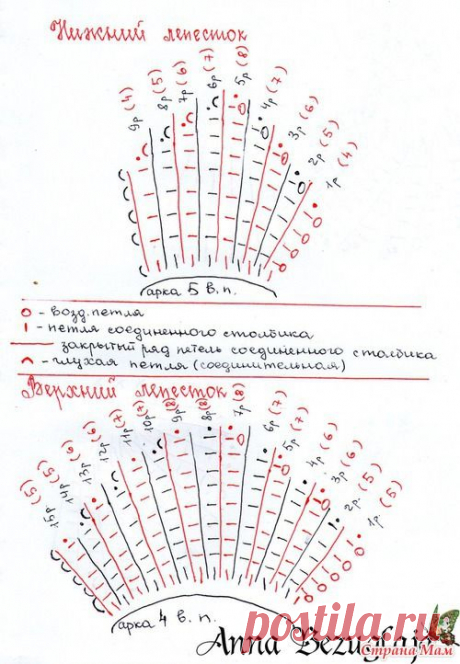 Нижний лепесток
9р (4) 8р (5) 7р (6) 6р (7) 5р (8) 4р (7) 3р (6) 2р (5) 1р (4)
арка 5 в.п.
о - возд. петля
ı - петля соединенного столбика
— закрытый ряд петель соединеного столбика
⌒ - глухая петля (соединительная)
Верхний лепесток
15р (5) 14р (5) 13р (6) 12р (6) 11р (7) 10р (7) 9р (8) 8р (8) 7р (8) 6р (7) 5р (7) 4р (6) 3р (6) 2р. (5) 1р (5)
арка 4 в. п.
Anna Bezuglaja
postila.ru
Страна Мам